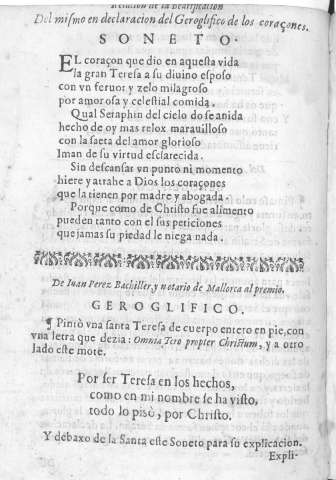 Relacion de la Beatificacion
Del mismo en declaracion del Geroglifico de los coraçones.
SONETO.
EL coraçon que dio en aquesta vida
la gran Teresa a su diuino esposo
con vn feruor y zelo milagroso
por amorosa y celestial comida.
Qual Seraphin del cielo do se anida
hecho de oy mas relox marauilloso
con la saeta del amor glorioso
Iman de su virtud esclarecida.
Sin descansar vn punto ni momento
hiere y atrahe a Dios los coraçones
que la tienen por madre y abogada.
Porque como de Christo fue alimento
pueden tanto con el sus peticiones
que jamas su piedad le niega nada.
De Iuan Perez Bachiller, y notario de Mallorca al premio.
GEROGLIFICO.
¶ Pintò vna santa Teresa de cuerpo entero en pie, con
vna letra que dezia: Omnia Tero propter Christum, y a otro
lado este mote.
Por ser Teresa en los hechos,
como en mi nombre se ha visto,
todo lo pisò, por Christo.
Y debaxo de la Santa este Soneto para su explicacion.
Expli-